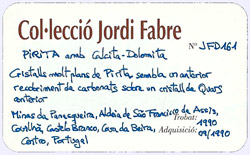 Col·lecció Jordi Fabre
Nº JFD161
PIRITA amb Calcita-Dolomita
Cristalls molt plans de Pirita, sembla un anterior
recobriment de carbonats sobre un cristall de Quars
anterior
Minas da Panasqueira, Aldeia de São Francisco de Assis,
Trobat:
Covilhã, Castelo Branco, Cova da Beira, 1990
Adquisició: 09/1990
Centro, Portugal